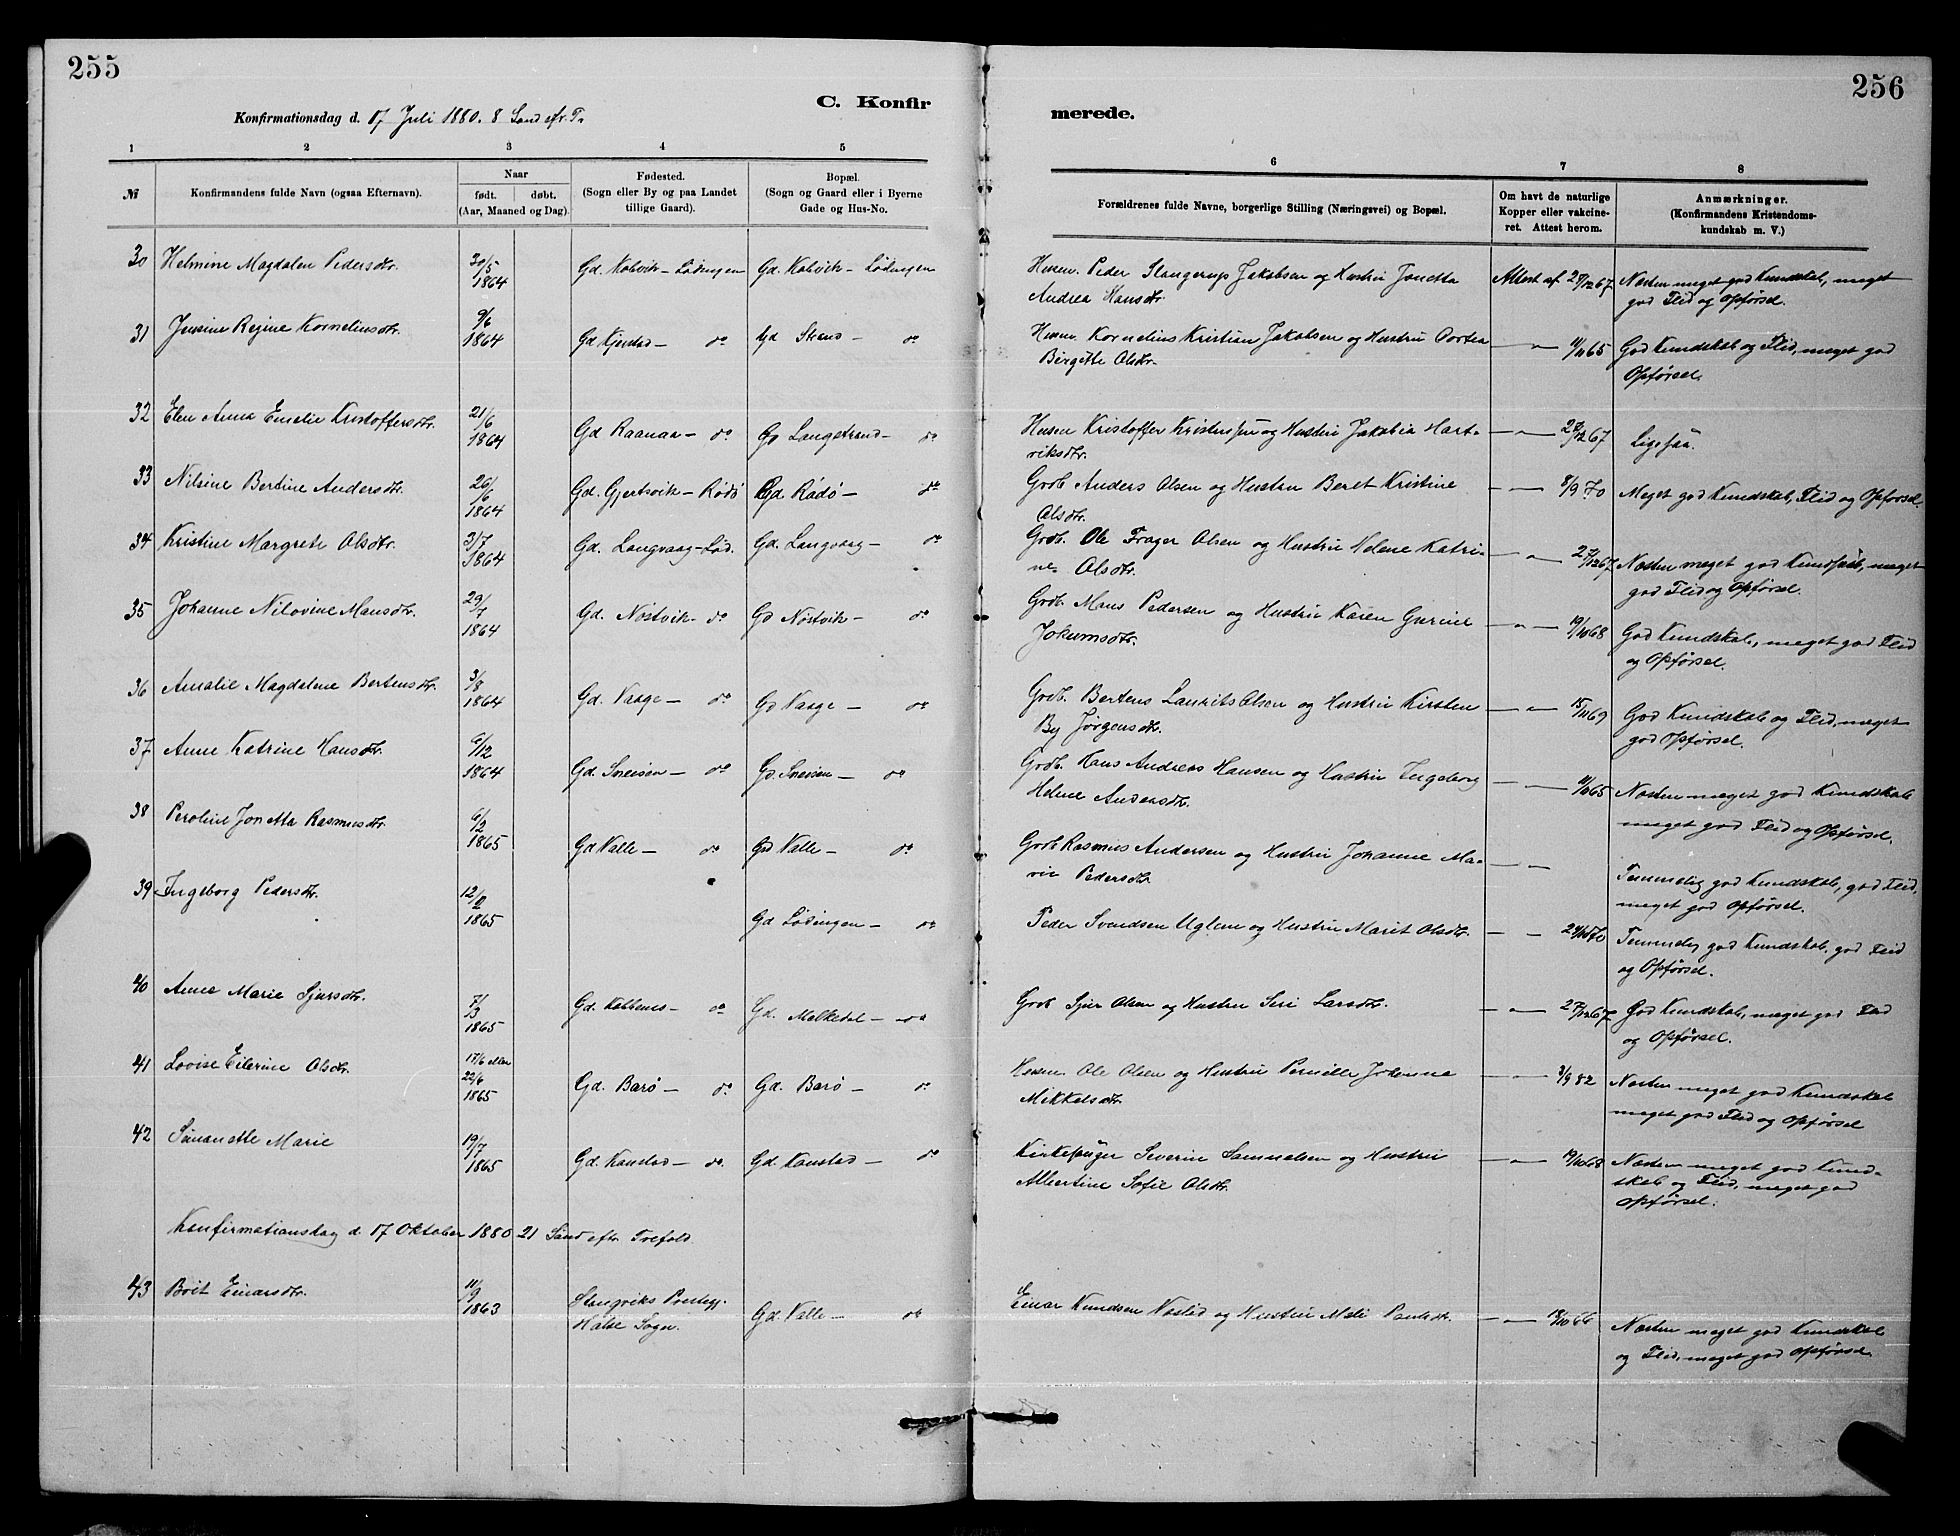 255
256
C. Konfir
merede.
Konfirmationsdag d. 17 Juli 1880. 8 Sønd. efr. Tr.
1 2 3 4 5
6 7 8
№ Konfirmandens fulde Navn (ogsaa Efternavn). Naar født. døbt. (Aar, Maaned og Dag). Fødested. (Sogn eller By og paa Landet tillige Gaard). Bopæl. (Sogn og Gaard eller i Byerne Gade og Hus-No.
Forældrenes fulde Navne, borgerlige Stilling (Næringsvei) og Bopæl. Om havt de naturlige Kopper eller vakcineret. Attest herom. Anmærkninger. (Konfirmandens Kristendomskundskab m. V.)
30 Helmine Magdalen Pedersdtr. 20/5 1864 Gd. Kobvik - Lødingen Gd. Kobvik - Lødingen
Husm. Peder Slangerup Jakobsen og Hustru Jonetta
Andrea Hansdtr. Attest af 28/12 67 Næsten meget god Kundskab, meget
god Flid og Opførsel.
31 Jensine Regine Korneliusdtr. 9/6 1864 Gd Kjerstad - do Gd Strand - do
Husm. Kornelius Kristian Jakobsen og Hustru Dortea
Birgitte Olsdtr. - " - 11/11 65 God Kundskab og Flid, meget god
Opførsel.
32 Elen Anna Emelie Kristoffersdtr. 21/6 1864 Gd Raanaa - do Gd Langstrand - do
Husm Kristoffer Kristensen og Hustru Jakobia Hart-
viksdtr. - " - 28/12 67 Ligesaa.
33 Nilsine Bertine Andersdtr. 26/6 1864 Gd. Gjertsvik - Rødø Gd Rødø - do
Grdb. Anders Olsen og Hustru Beret Kristine
Olsdtr. - " - 8/9 70 Meget god Kundskab, Flid og Opførsel.
34 Kristine Margrete Olsdtr. 3/7 1864 Gd. Langvaag - Lød. Gd. Langvaag - do
Grdb. Ole Frager Olsen og Hustru Helene Katri-
ne Olsdtr. - " - 27/12 67 Næsten meget god Kundskab, meget
god Flid og Opførsel.
35 Johanne Nilovine Mansdtr. 29/7 1864 Gd. Nøstvik - do Gd Nøstvik - do
Grdb. Mans Pedersen og Hustru Karen Gurine
Jokumsdtr. - " - 19/10 68 God Kundskab, meget god Flid
og Opførsel.
36 Amalie Magdalene Bertensdtr. 3/8 1864 Gd. Vaage - do Gd Vaage - do
Grdb. Bertens Laurits Olsen og Hustru Kirsten
By Jørgensdtr. - " - 15/11 69 God Kundskab og Flid, meget
god Opførsel.
37 Anne Katrine Hansdtr. 6/12 1864 Gd. Sneisen - do Gd. Sneisen - do
Grdb. Hans Andreas Hansen og Hustru Ingeborg
Helene Andersdtr. - - 11/11 65 Næsten meget god Kundskab
meget god Flid og Opførsel.
38 Peroline Jonetta Rasmusdtr. 6/2 1865 Gd Valle - do Gd Valle - do
Grdb Rasmus Andersen og Hustru Johanne Ma-
rie Pedersdtr. - " - Temmelig god Kundskab, god Flid,
meget god Opførsel.
39 Ingeborg Pedersdtr. 12/2 1865 Gd Lødingen - do
Peder Svendsen Uglem og Hustru Marit Olsdtr. - - 24/10 70 Temmelig god Kundskab, god Flid
og Opførsel.
40 Anne Marie Sjursdtr. 7/3 1865 Gd. Kobbenes - do Gd. Melkedal - do
Grdb Sjur Olsen og Hustru Seri Larsdtr. - " - 27/12 67 God Kundskab, meget god Flid
og Opførsel.
41 Lovise Eilerine Olsdtr. 17/6 eller 22/6 1865 Gd. Barø - do Gd. Barø - do
Husm. Ole Olsen og Hustru Pernille Johanna
Mikkelsdtr. - " - 3/9 82 Næsten meget god Kundskab
meget god Flid og Opførsel
42 Simanette Marie 19/7 1865 Gd. Kanstad - do. Gd. Kanstad - do
Kirkesanger Severin Samuelsen og Hustru
Albertine Sofie Olsdtr. - " - 19/10 68 Næsten meget god Kund-
skab og Flid, meget god
Opførsel.
Konfirmationsdag d. 17 Oktober 1880 21 Sønd efter Trefold.
43 Brit Einarsdtr. 11/9 1863 Stangviks Prestegj. Halse Sogn. Gd. Valle - do
Einar Knudsen og Hustru Mali Paulsdtr. - " - 18/10 66 Næsten meget god Kundskab
og Flid, meget god Opførsel.